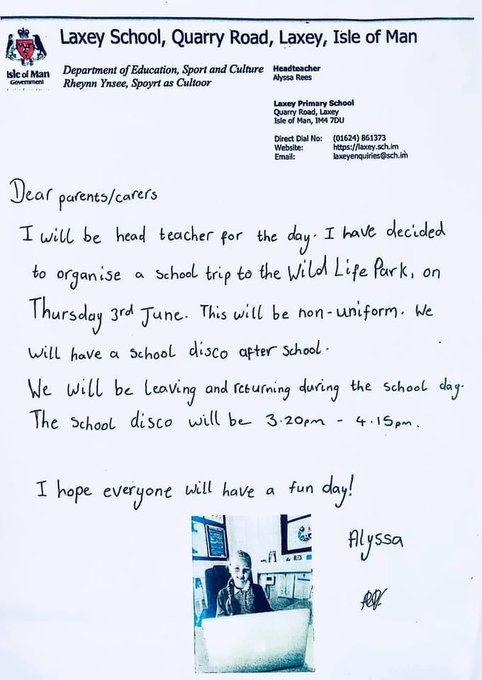 Laxey School, Quarry Road, Laxey, Isle of Man
Isle of Man
Government
Department of Education, Sport and Culture
Rheynn Ynsee, Spoyrt as Cultoor
Headteacher
Alyssa Rees
Laxey Primary School
Quarry Road, Laxey
Isle of Man, IM4 7DU
Direct Dial No: (01624) 861373
Website: https://laxey.sch.im
Email: laxeyenquiries@sch.im
Dear parents/carers
I will be head teacher for the day. I have decided
to organise a school trip to the Wild Life Park, on
Thursday 3rd June. This will be non-uniform. We
will have a school disco after school.
We will be leaving and returning during the school day.
The school disco will be 3.20pm - 4.15pm.
I hope everyone will have a fun day!
Alyssa